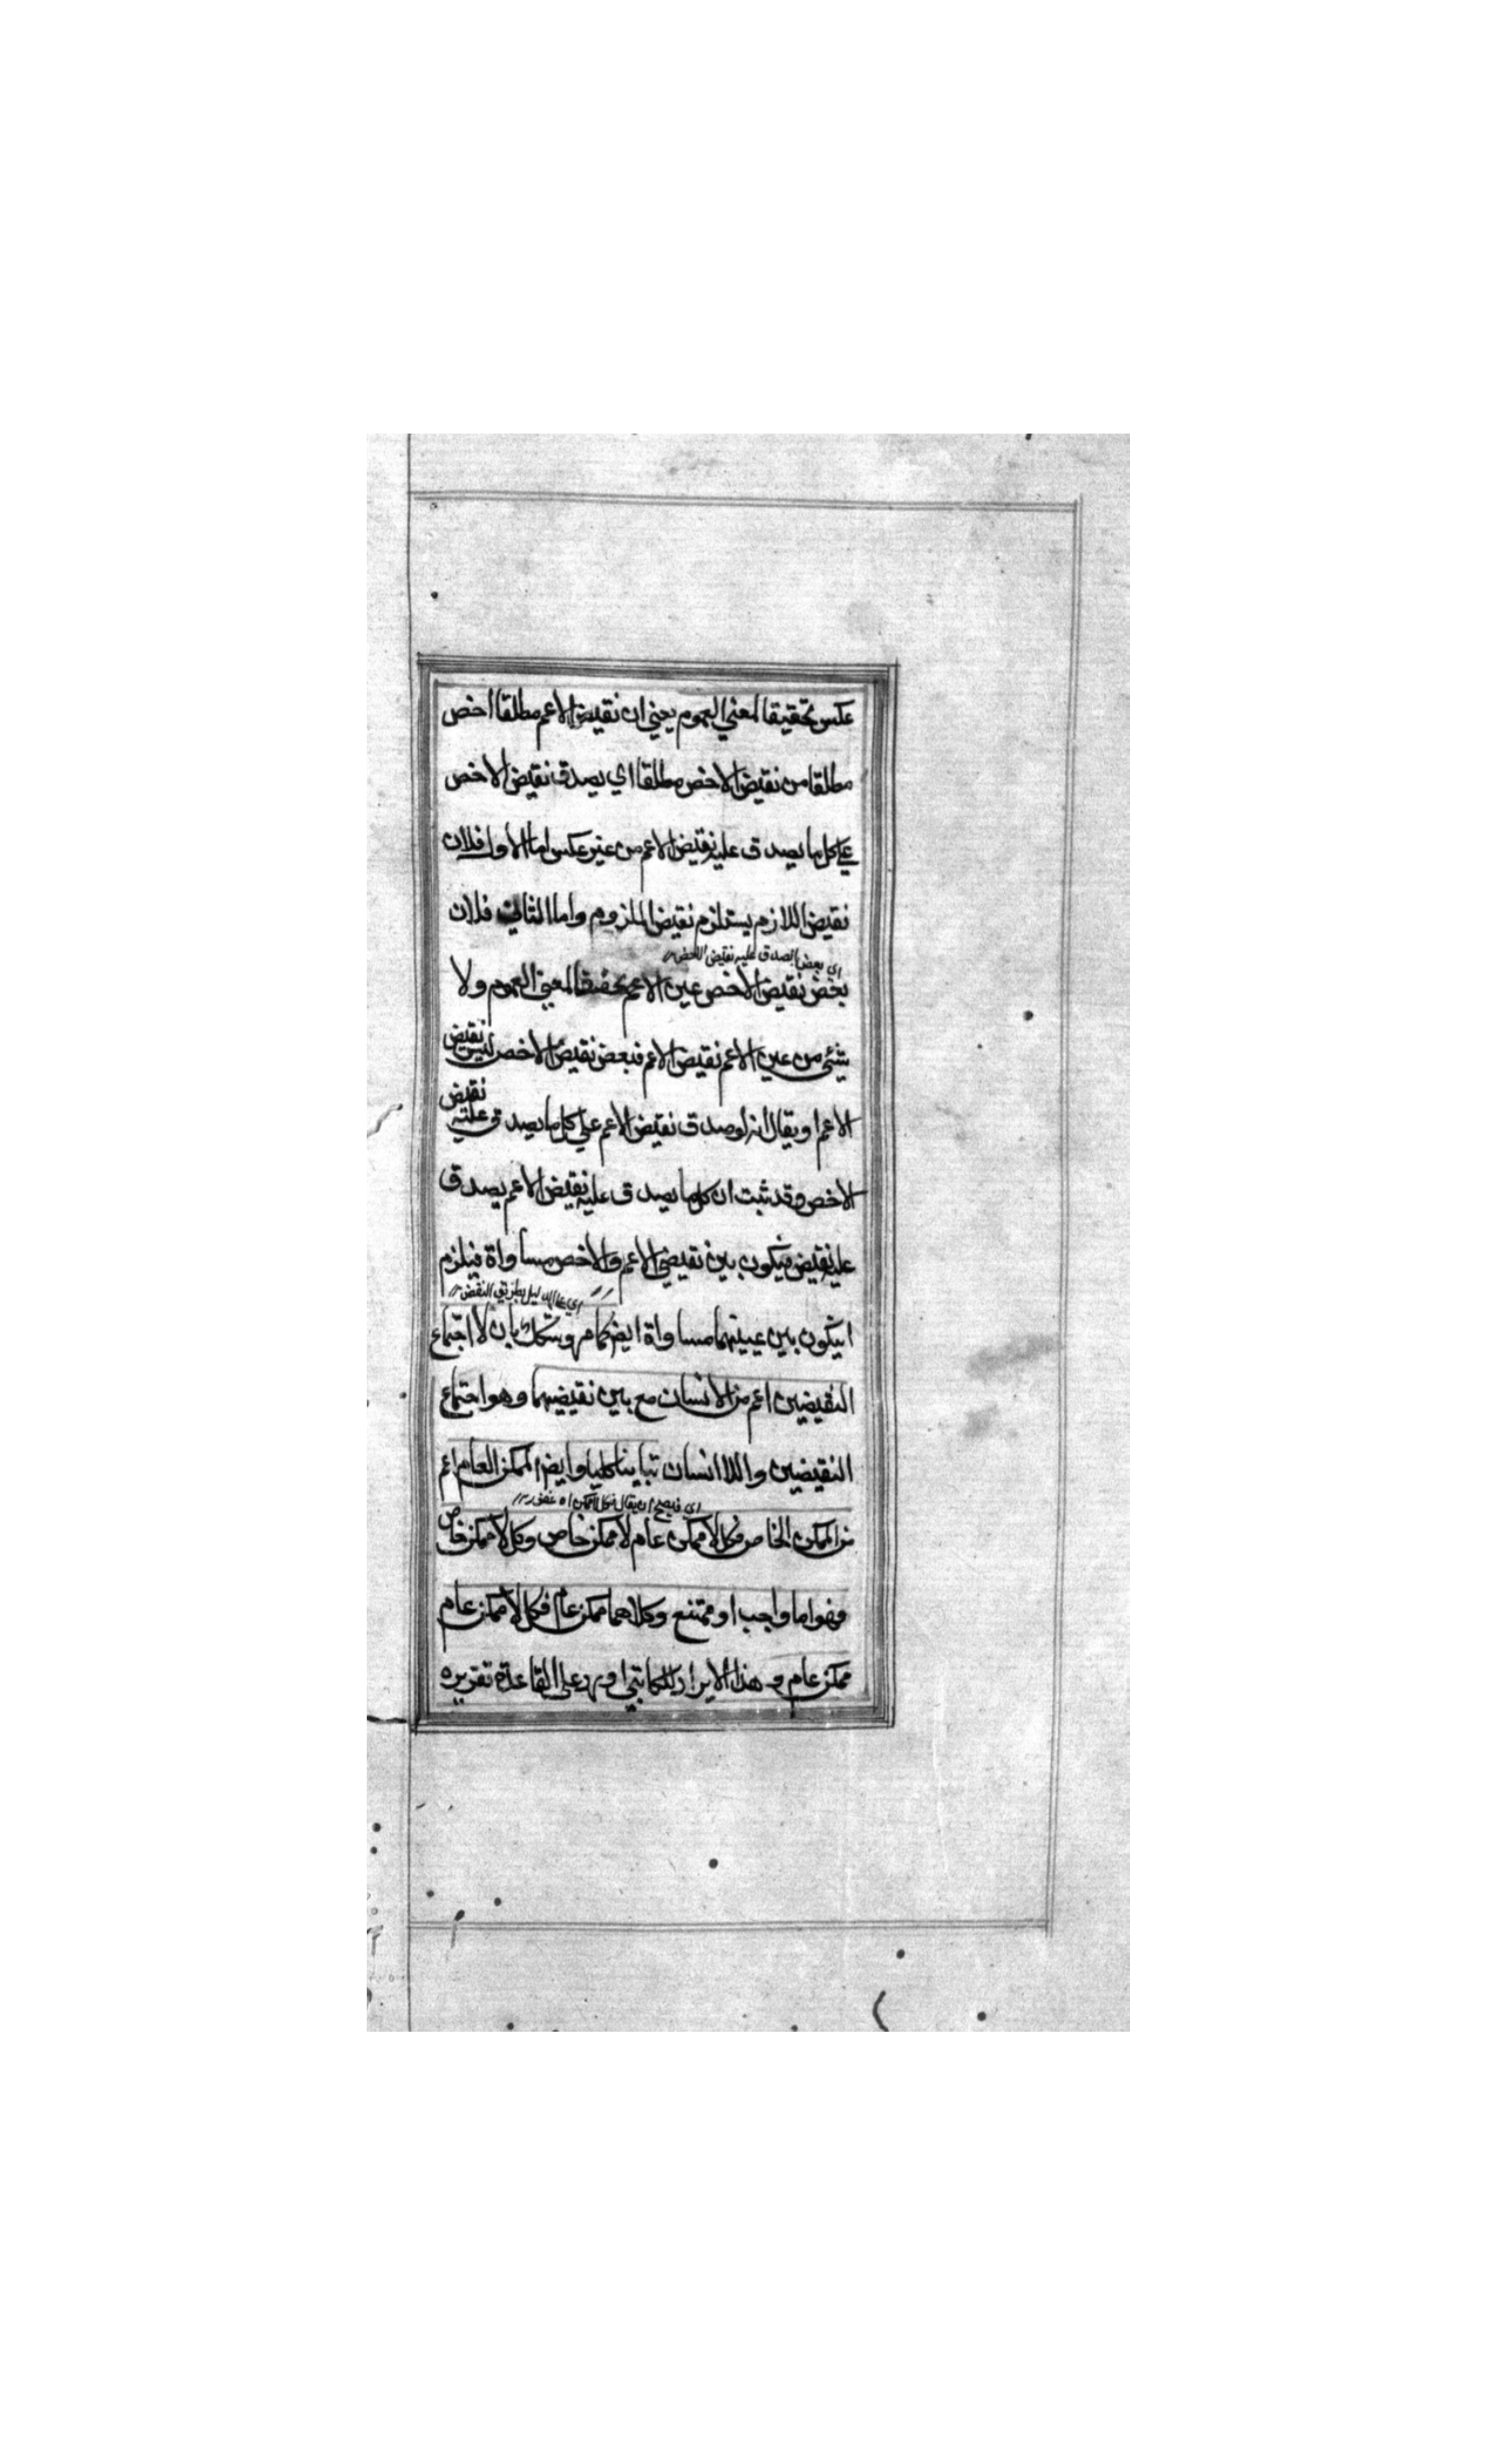 عكس تحقيقا لمعني العموم يعني ان نقيض الاعم مطلقا اخص
مطلقا من نقيض الاخص مطلقا اي يصدق نقيض الاخص
علي كل ما يصدق عليه نقيض الاعم من غير عكس اما الاول فلان
نقيض اللازم يستلزم نقيض الملزوم واما الثاني فلان
اي بعض ما تصدق عليه نقيض الاخص
بعض نقيض الاخص عين الاعم تحقيقا لمعني العموم ولا
شئ من عين الاعم نقيض الاعم فبعض نقيض الاخص ليس نقيض
الاعم او يقال انه لو صدق نقيض الاعم علي كل ما يصدق عليه نقيض
الاخص وقد ثبت ان كل ما يصدق عليه نقيض الاعم يصدق
عليه نقيض فيكون بين نقيضي الاعم والاخص مساواة فيلزم
اي علي الدليل بطريق النقض
ان يكون بين عينيهما مساواة ايضا كما مر وشكك بان لا اجتماع
النقيضين اعم من الانسان مع بين نقيضيهما وهو اجتماع
النقيضين واللا انسان تباينا كليا وايضا الممكن العام اعم
اي فيصح ان يقال فكل لا ممكن اه
من الممكن الخاص فكل لا ممكن عام لا ممكن خاص وكل لا ممكن خاص
فهو اما واجب او ممتنع وكلاهما ممكن عام فكل لا ممكن عام
ممكن عام وهذا الايراد كما يرد علي القاعدة تقريره